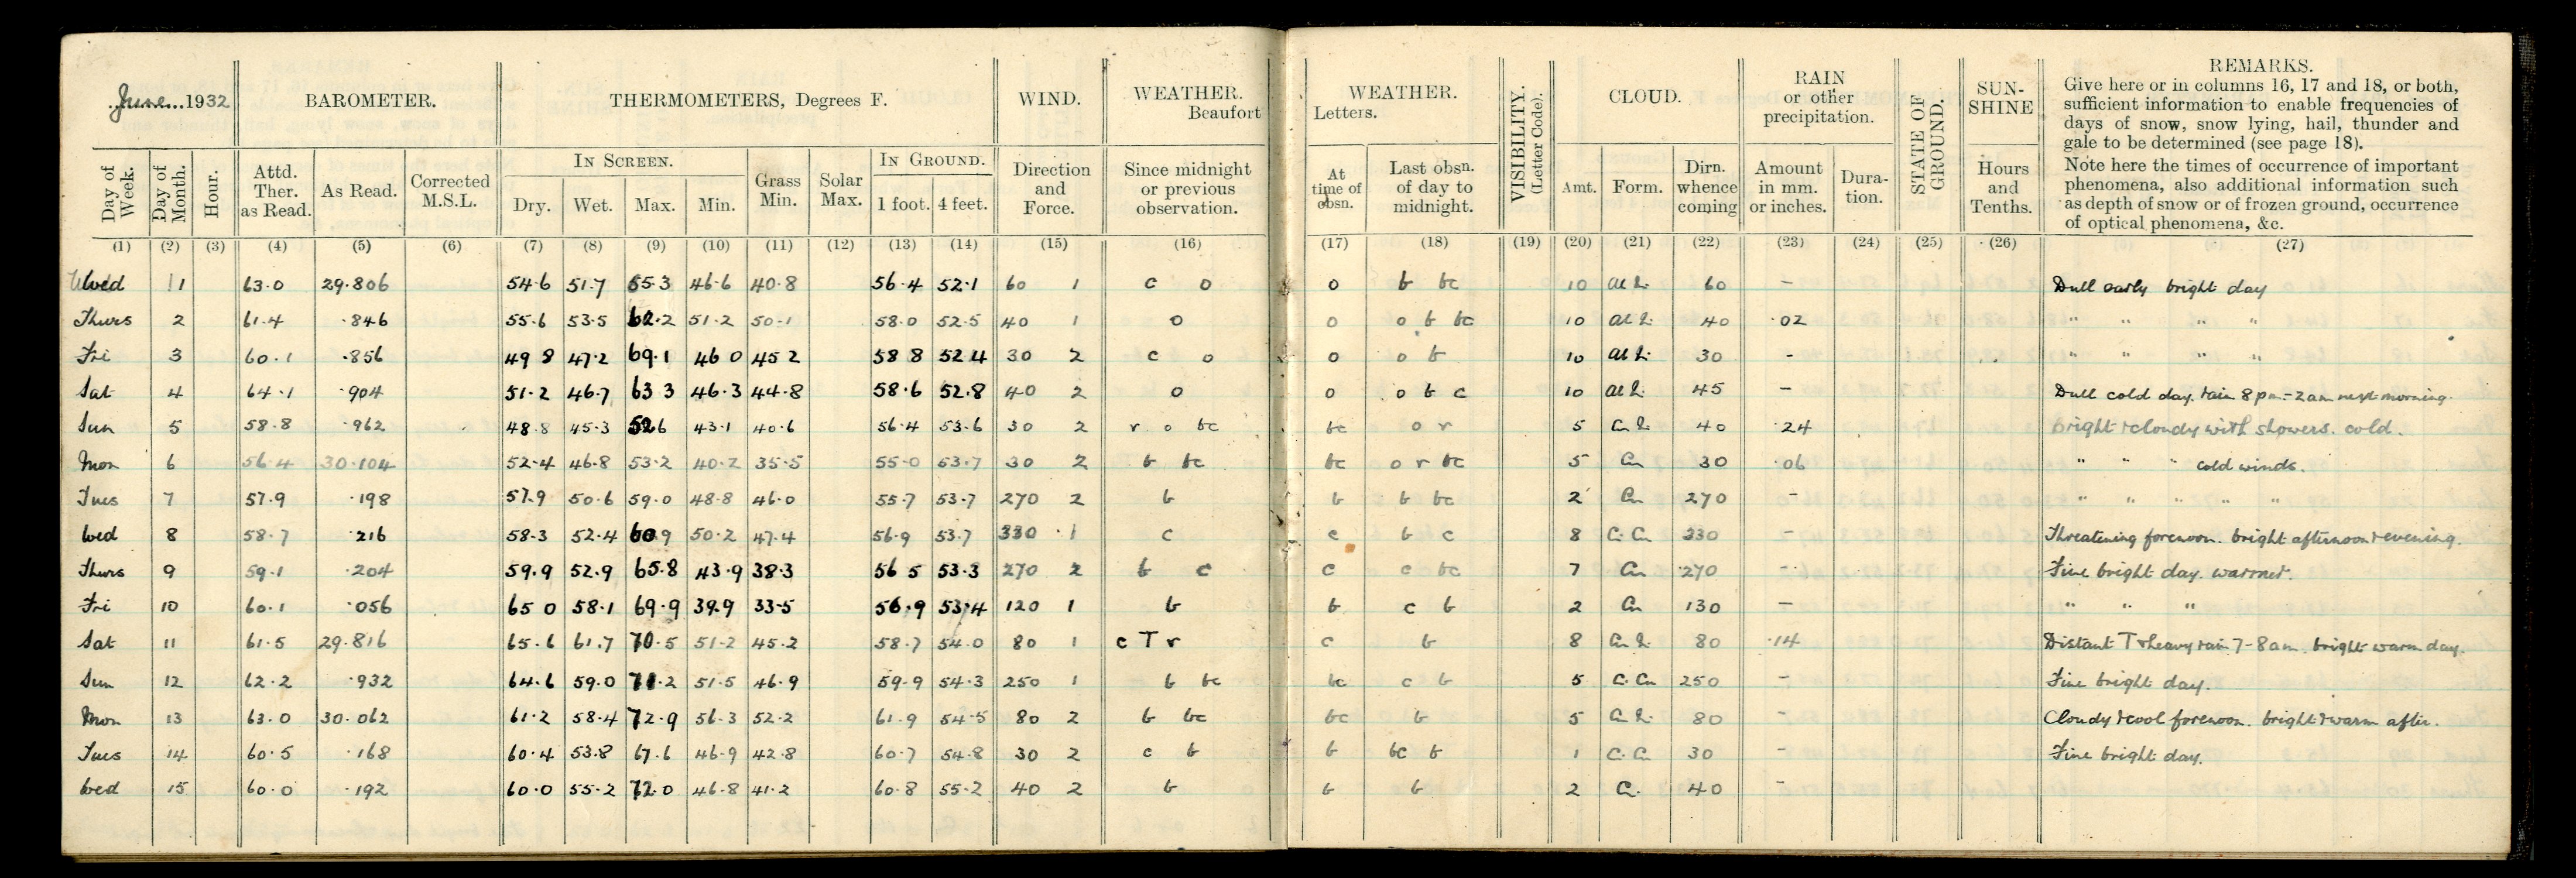 June 1932 BAROMETER. THERMOMETERS, Degrees F. WIND. WEATHER. Beaufort
Day of Week. Day of Month. Hour. Attd. Ther. as Read. As Read. Corrected M.S.L. IN SCREEN. Dry. Wet. Max. Min. Grass Min. Solar Max. IN GROUND. 1 foot. 4 feet. Direction and Force. Since midnight or previous observation.
(1) (2) (3) (4) (5) (6) (7) (8) (9) (10) (11) (12) (13) (14) (15) (16)
Wed 1 63.0 29.806 54.6 51.7 55.3 46.6 40.8 56.4 52.1 60 1 c o
Thurs 2 61.4 .846 55.6 53.5 62.2 51.2 50.1 58.0 52.5 40 1 o
Fri 3 60.1 .856 49 8 47.2 69.1 46 0 45 2 58 8 52 4 30 2 c o
Sat 4 64.1 .904 51.2 46.7 63 3 46.3 44.8 58.6 52.8 40 2 o
Sun 5 58.8 .962 48.8 45.3 52 6 43.1 40.6 56.4 53.6 30 2 r o bc
Mon 6 56.4 30.104 52.4 46.8 53.2 40.2 35.5 55.0 53.7 30 2 b bc
Tues 7 57.9 .198 57.9 50.6 59.0 48.8 46.0 55.7 53.7 270 2 b
Wed 8 58.7 .216 58.3 52.4 60 9 50.2 47.4 56.9 53.7 330 1 c
Thurs 9 59.1 .204 59.9 52.9 65.8 43.9 38.3 56 5 53.3 270 2 b c
Fri 10 60.1 .056 65 0 58.1 69.9 39.9 33.5 56.9 53.4 120 1 b
Sat 11 61.5 29.816 65.6 61.7 70.5 51.2 45.2 58.7 54.0 80 1 c T r
Sun 12 62.2 .932 64.6 59.0 71.2 51.5 46.9 59.9 54.3 250 1 b bc
Mon 13 63.0 30.062 61.2 58.4 72.9 56.3 52.2 61.9 54.5 80 2 b bc
Tues 14 60.5 .168 60.4 53.8 67.6 46.9 42.8 60.7 54.8 30 2 c b
Wed 15 60.0 .192 60.0 55.2 72.0 46.8 41.2 60.8 55.2 40 2 b
WEATHER. Letters. VISIBILITY. (Letter Code). CLOUD. RAIN or other precipitation. STATE OF GROUND. SUN-SHINE REMARKS.
Give here or in columns 16, 17 and 18, or both,
sufficient information to enable frequencies of
days of snow, snow lying, hail, thunder and
gale to be determined (see page 18).
Note here the times of occurrence of important
phenomena, also additional information such
as depth of snow or of frozen ground, occurrence
of optical phenomena, &c.
At time of obsn. Last obsn. of day to midnight. Amt. Form. Dirn. whence coming Amount in mm. or inches. Dura-tion. Hours and Tenths.
(17) (18) (19) (20) (21) (22) (23) (24) (25) (26) (27)
o b bc 10 60 - Dull early bright day
o o b bc 10 40 .02 " " " "
o o b 10 30 - " " " "
o o b c 10 45 - Dull cold day. rain 8 pm - 2 am next morning.
bc o r 5 40 .24 bright & cloudy with showers. cold.
bc o r bc 5 Cu 30 .06 " " " cold winds.
b b bc 2 Cu 270 - " " " " "
c b c 8 C. Cu 330 - Threatening forenoon. bright afternoon & evening.
c c bc 7 Cu 270 - Fine bright day. warmer.
b c b 2 Cu 130 - " " "
c b 8 80 .14 Distant T & heavy rain 7-8 am. bright warm day.
bc c b 5 C. Cu 250 - Fine bright day.
bc b 5 80 - Cloudy & cool forenoon. bright & warm after.
b bc b 1 C. Cu 30 - Fine bright day.
b b 2 C. 40 -